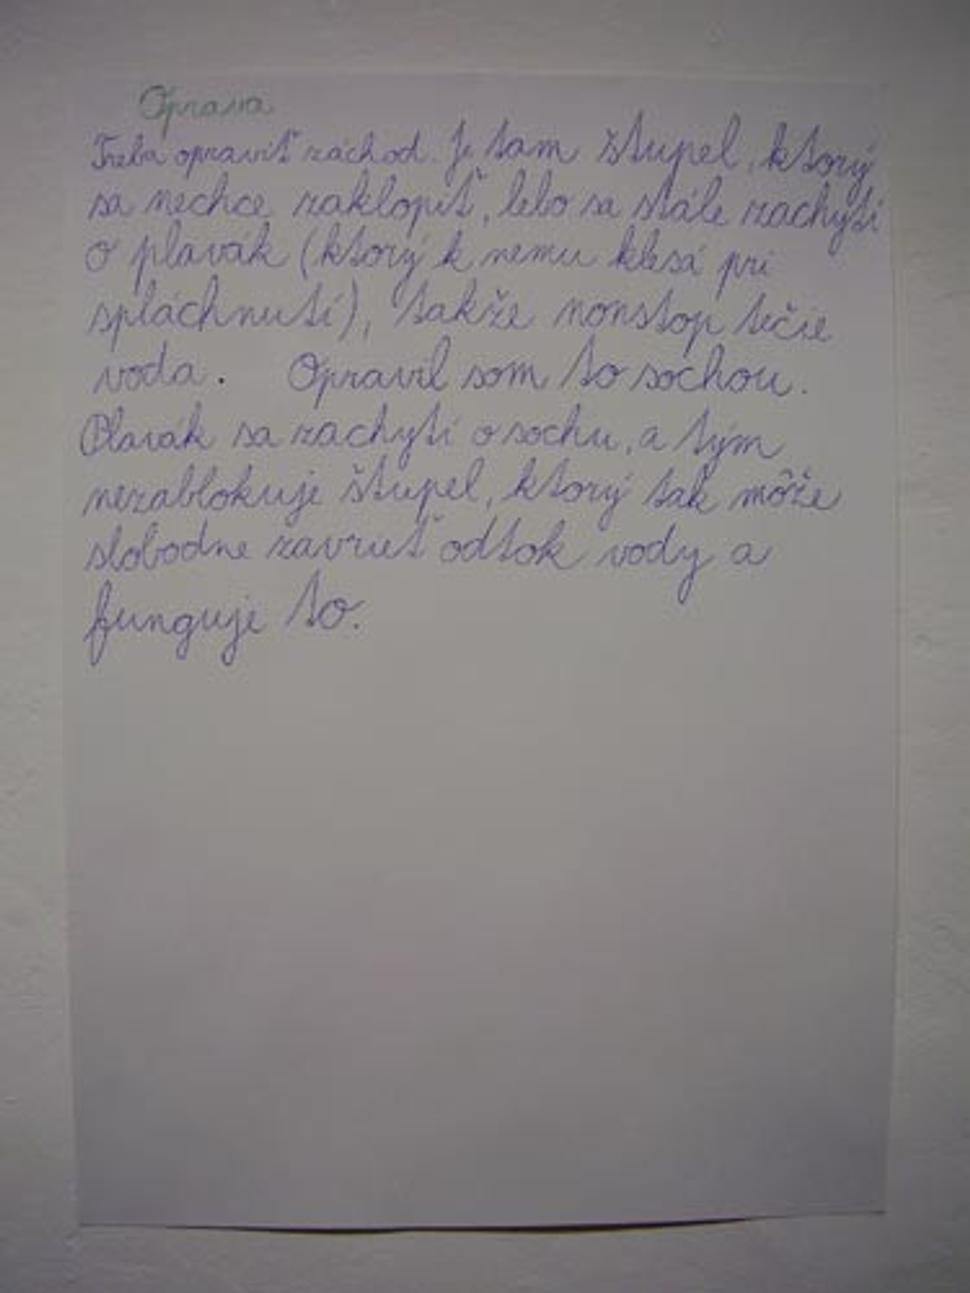 Oprava
Treba opraviť záchod. Je tam štupel, ktorý
sa nechce zaklopiť, lebo sa stále zachytí
o plavák (ktorý k nemu klesá pri
spláchnutí), takže nonstop tečie
voda. Opravil som to sochou.
Plavák sa zachytí o sochu, a tým
nezablokuje štupel, ktorý tak môže
slobodne zavrieť odtok vody a
funguje to.